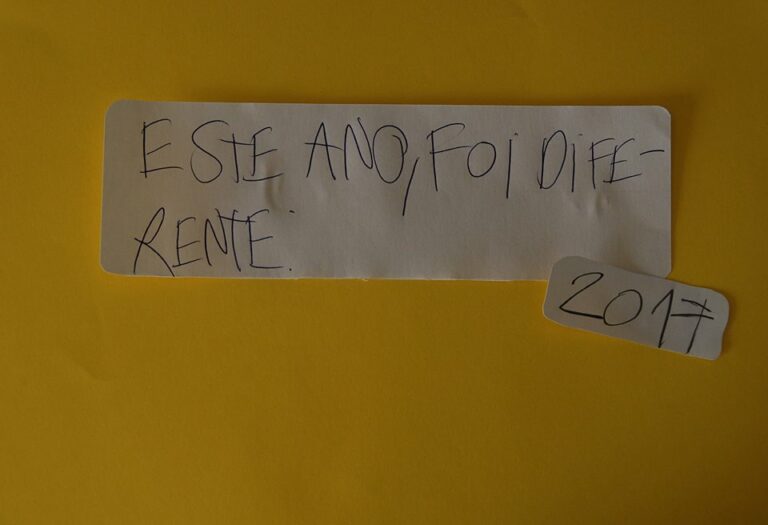 ESTE ANO, FOI DIFE-
RENTE.
2017